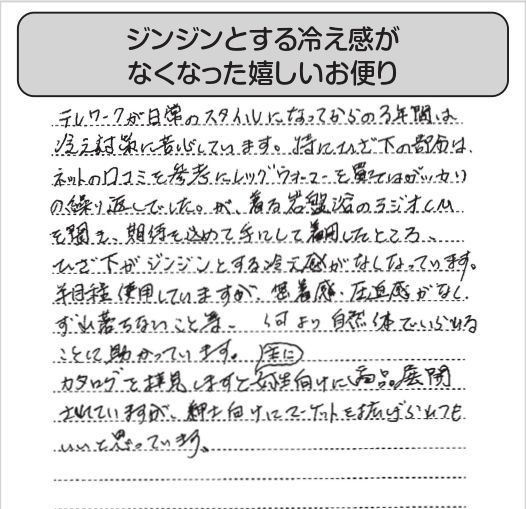 ジンジンとする冷え感が
なくなった嬉しいお便り
テレワークが日常のスタイルになってからの3年間は
冷え対策に苦心しています。特にひざ下の部分は、
ネットの口コミを参考にレッグウォーマーを買ってはがっかり
の繰り返しでした。が、着る岩盤浴のラジオCM
を聞き、期待を込めて手にして着用したところ、
ひざ下がジンジンとする冷え感がなくなっています。
半月程使用していますが、密着感・圧迫感がなく
ずれ落ちないこと等、何より自然体でいられる
ことに助かっています。
カタログを拝見しますと主に女性向けに商品展開
されていますが、紳士向けにマーケットを拡げられても
いいと思っています。